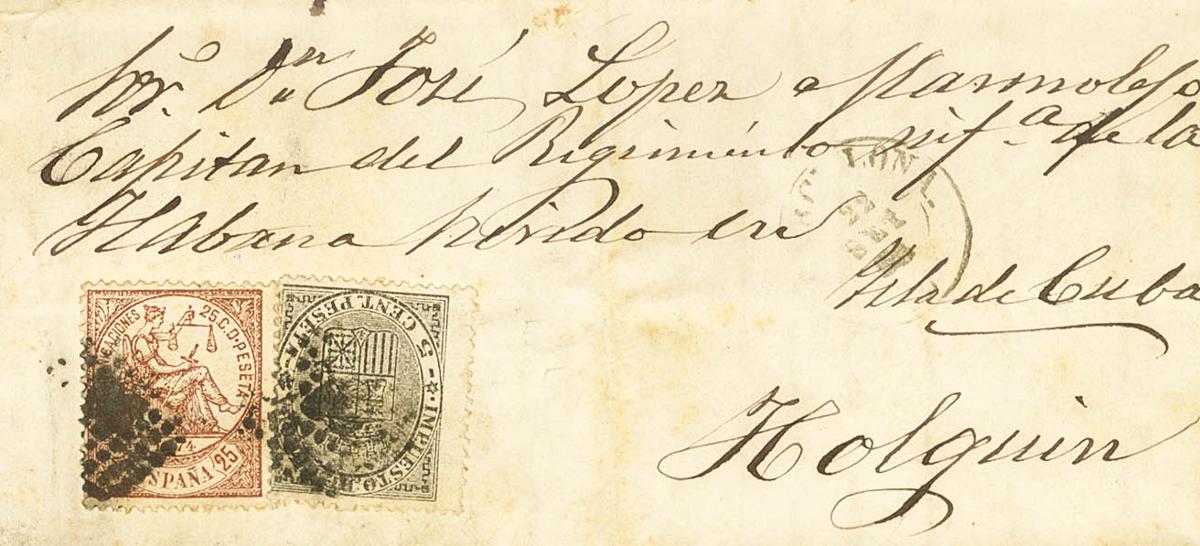 Sor. Dn José Lopez Marmolejo
Capitan del Regimiento inf.a de la
Habana herido en
Isla de Cuba
Holguin
COMUNICACIONES
25 C. D. PESETA
1874
ESPAÑA 25
5 CENT. PESETA
IMPUESTO DE
SET